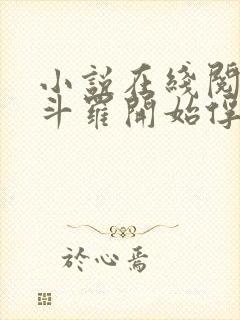 小説在綫閱
斗羅開始俘
於心焉